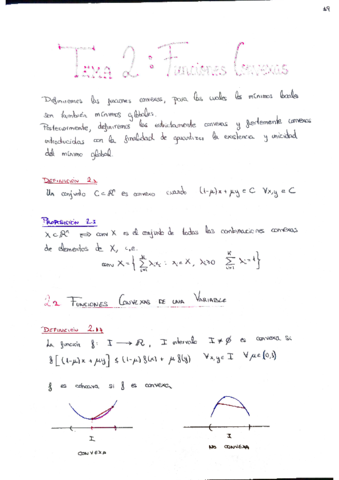 Tema 2: Funciones Convexas
Definiremos las funciones convexas, para las cuales los mínimos locales
son también mínimos globales.
Posteriormente, definiremos las estrictamente convexas y fuertemente convexas
introducidas con la finalidad de garantizar la existencia y unicidad
del mínimo global.
DEFINICIÓN 2.1
Un conjunto C⊂ℝⁿ es convexo cuando (1-μ)x + μy ∈ C ∀x,y ∈ C
PROPOSICIÓN 2.1
X⊂ℝⁿ conv X es el conjunto de todas las combinaciones convexas
de elementos de X, i.e.
conv X = { Σ λᵢxᵢ : xᵢ ∈ X, λᵢ≥0 Σ λᵢ = 1 }
FUNCIONES CONVEXAS DE UNA VARIABLE
DEFINICIÓN
La función f: I → ℝ, I intervalo I ≠ ∅ es convexa si
f[(1-μ)x + μy] ≤ (1-μ)f(x) + μf(y) ∀x,y ∈ I ∀μ ∈ (0,1)
f es cóncava si f es convexa
I
CONVEXA
I
NO CONVEXA